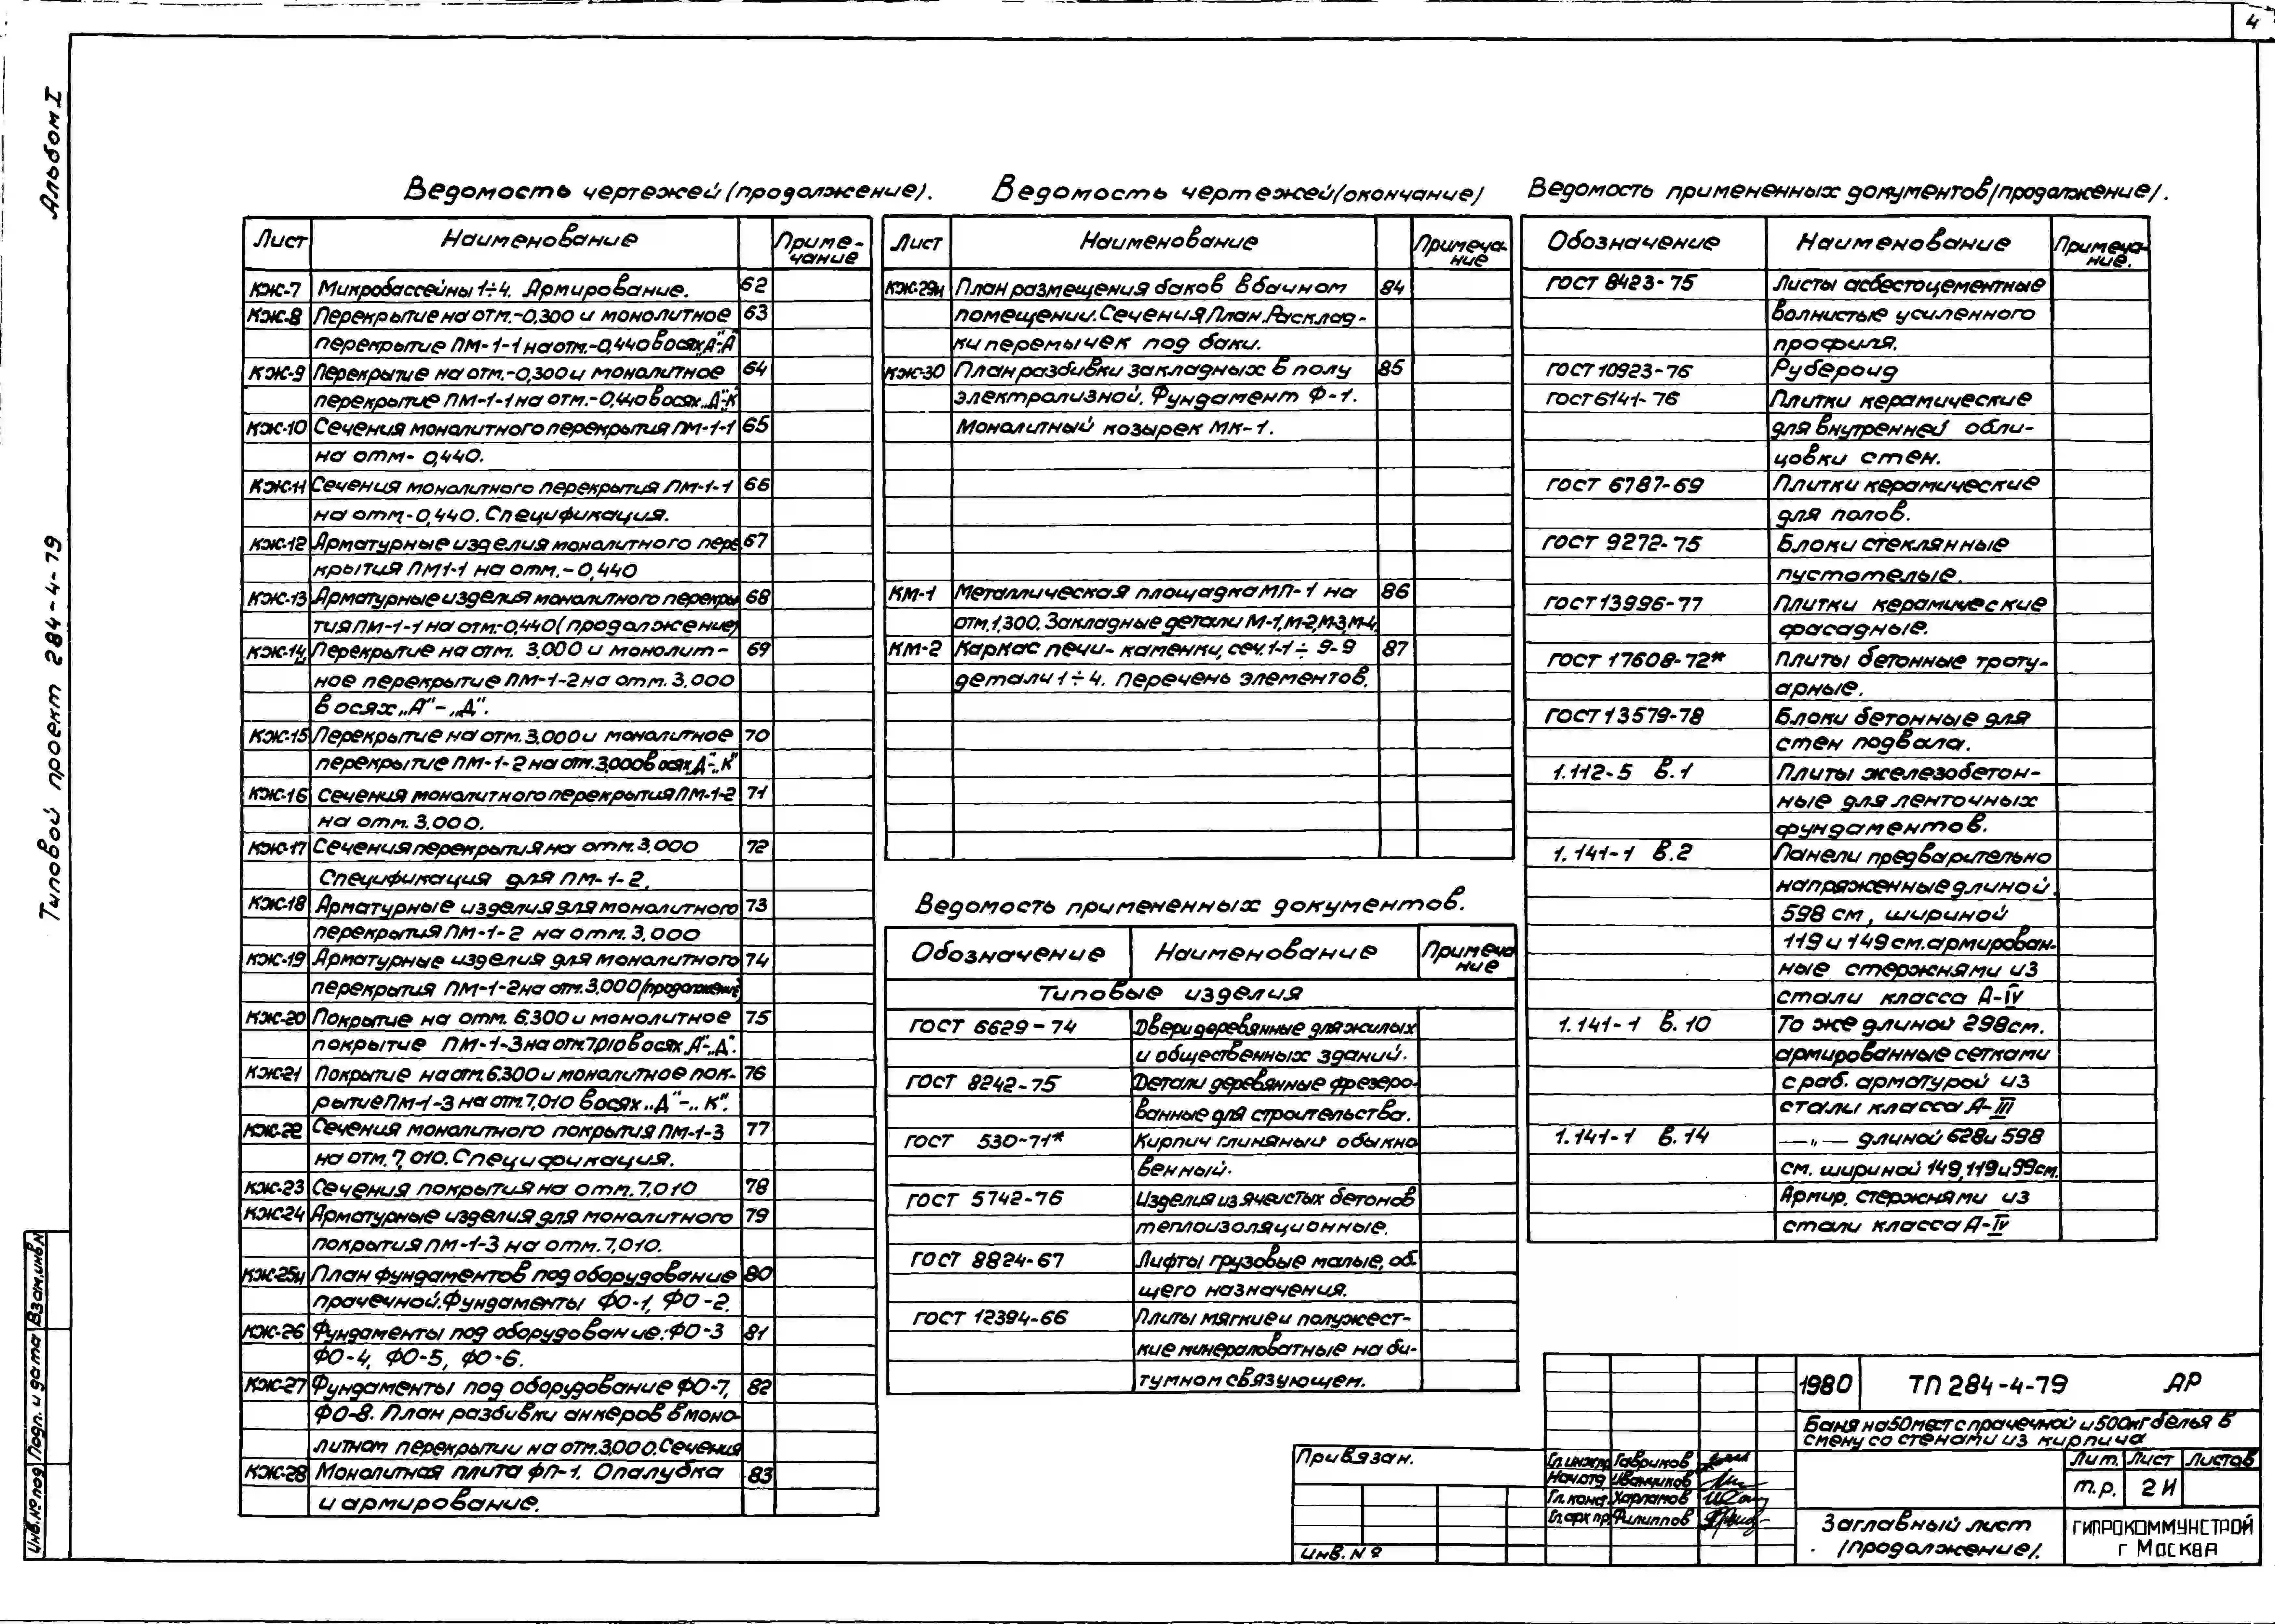 4
Альбом I
Типовой проект 284-4-79
Взам.инв.N
Подп. и дата
Инв.№под
Ведомость чертежей (продолжение).
Лист Наименование Приме-
чание
КЖ-7 Микробассейны 1÷4. Армирование. 62
КЖ-8 Перекрытие на отм.-0,300 и монолитное 63
перекрытие ПМ-1-1 на отм.-0,440 в осях„А"-„Д"
КЖ-9 Перекрытие на отм.-0,300 и монолитное 64
перекрытие ПМ-1-1 на отм.-0,440 в осях„Д"-„К"
КЖ-10 Сечения монолитного перекрытия ПМ-1-1 65
на отм- 0,440.
КЖ-11 Сечения монолитного перекрытия ПМ-1-1 66
на отм,-0,440. Спецификация.
КЖ-12 Арматурные изделия монолитного пере 67
крытия ПМ1-1 на отм.-0,440
КЖ-13 Арматурные изделия монолитного перекры 68
тия ПМ-1-1 на отм.-0,440 (продолжение)
КЖ-14 Перекрытие на отм. 3,000 и монолит- 69
ное перекрытие ПМ-1-2 на отм. 3,000
в осях „А"-„Д".
КЖ-15 Перекрытие на отм. 3,000 и монолитное 70
перекрытие ПМ-1-2 на отм.3,000 в осях„Д"-„К"
КЖ-16 Сечения монолитного перекрытия ПМ-1-2 71
на отм. 3.000.
КЖ-17 Сечения перекрытия на отм. 3,000 72
Спецификация для ПМ-1-2.
КЖ-18 Арматурные изделия для монолитного 73
перекрытия ПМ-1-2 на отм. 3,000
КЖ-19 Арматурные изделия для монолитного 74
перекрытия ПМ-1-2 на отм. 3,000 (продолжение)
КЖ-20 Покрытие на отм. 6.300 и монолитное 75
покрытие ПМ-1-3 на отм.7,010 в осях„А"-„Д".
КЖ-21 Покрытие на отм.6.300 и монолитное пок- 76
рытие ПМ-1-3 на отм.7,010 в осях„Д"-„К".
КЖ-22 Сечения монолитного покрытия ПМ-1-3 77
на отм.7,010. Спецификация.
КЖ-23 Сечения покрытия на отм.7,010 78
КЖ-24 Арматурные изделия для монолитного 79
покрытия ПМ-1-3 на отм.7,010.
КЖ-25и План фундаментов под оборудование 80
прачечной. Фундаменты ФО-1, ФО-2.
КЖ-26 Фундаменты под оборудование: ФО-3 81
ФО-4, ФО-5, ФО-6.
КЖ-27 Фундаменты под оборудование ФО-7, 82
ФО-8. План разбивки анкеров в моно-
литном перекрытии на отм.3,000. Сечения
КЖ-28 Монолитная плита ФП-1. Опалубка 83
и армирование.
Ведомость чертежей (окончание)
Лист Наименование Примеча-
ние
КЖ-29и План размещения баков в бачном 84
помещении. Сечения План. Расклад-
ки перемычек под баки.
КЖ-30 План разбивки закладных в полу 85
электролизной. Фундамент Ф-1.
Монолитный козырек МК-1.
КМ-1 Металлическая площадка МП-1 на 86
отм.1,300. Закладные детали М-1,М-2,М-3,М-4.
КМ-2 Каркас печи-каменки, сеч.1-1÷9-9 87
детали 1÷4. Перечень элементов.
Ведомость примененных документов.
Обозначение Наименование Примеча
ние
Типовые изделия
ГОСТ 6629-74 Двери деревянные для жилых
и общественных зданий.
ГОСТ 8242-75 Детали деревянные фрезеро-
ванные для строительства.
ГОСТ 530-71* Кирпич глиняный обыкно
венный.
ГОСТ 5742-76 Изделия из ячеистых бетонов
теплоизоляционные.
ГОСТ 8824-67 Лифты грузовые малые, об-
щего назначения.
ГОСТ 12394-66 Плиты мягкие и полужест-
кие минераловатные на би-
тумном связующем.
Ведомость примененных документов (продолжение).
Обозначение Наименование Примеча-
ние.
ГОСТ 8423-75 Листы асбестоцементные
волнистые усиленного
профиля.
ГОСТ 10923-76 Рубероид
ГОСТ 6141-76 Плитки керамические
для внутренней обли-
цовки стен.
ГОСТ 6787-69 Плитки керамические
для полов.
ГОСТ 9272-75 Блоки стеклянные
пустотелые.
ГОСТ 13996-77 Плитки керамические
фасадные.
ГОСТ 17608-72* Плиты бетонные троту-
арные.
ГОСТ 13579-78 Блоки бетонные для
стен подвала.
1.112-5 в.1 Плиты железобетон-
ные для ленточных
фундаментов.
1.141-1 в.2 Панели предварительно
напряженные длиной
598 см, шириной
119 и 149 см. армирован-
ные стержнями из
стали класса А-IV
1.141-1 в.10 То же длиной 298см.
армированные сетками
с раб. арматурой из
стали класса А-III
1.141-1 в.14 —„— длиной 628 и 598
см. шириной 149,119 и 99см.
Армир. стержнями из
стали класса А-IV
Привязан.
Инв. №
Гл.инж.пр. Гавриков
Нач.отд. Иванчиков
Гл.конс. Харламов
Гл.арх.пр. Филиппов
1980 ТП 284-4-79 АР
Баня на 50 мест с прачечной и 500кг белья в
смену со стенами из кирпича
Лит. Лист Листов
Т.Р. 2И
Заглавный лист
(продолжение).
ГИПРОКОММУНСТРОЙ
г Москва